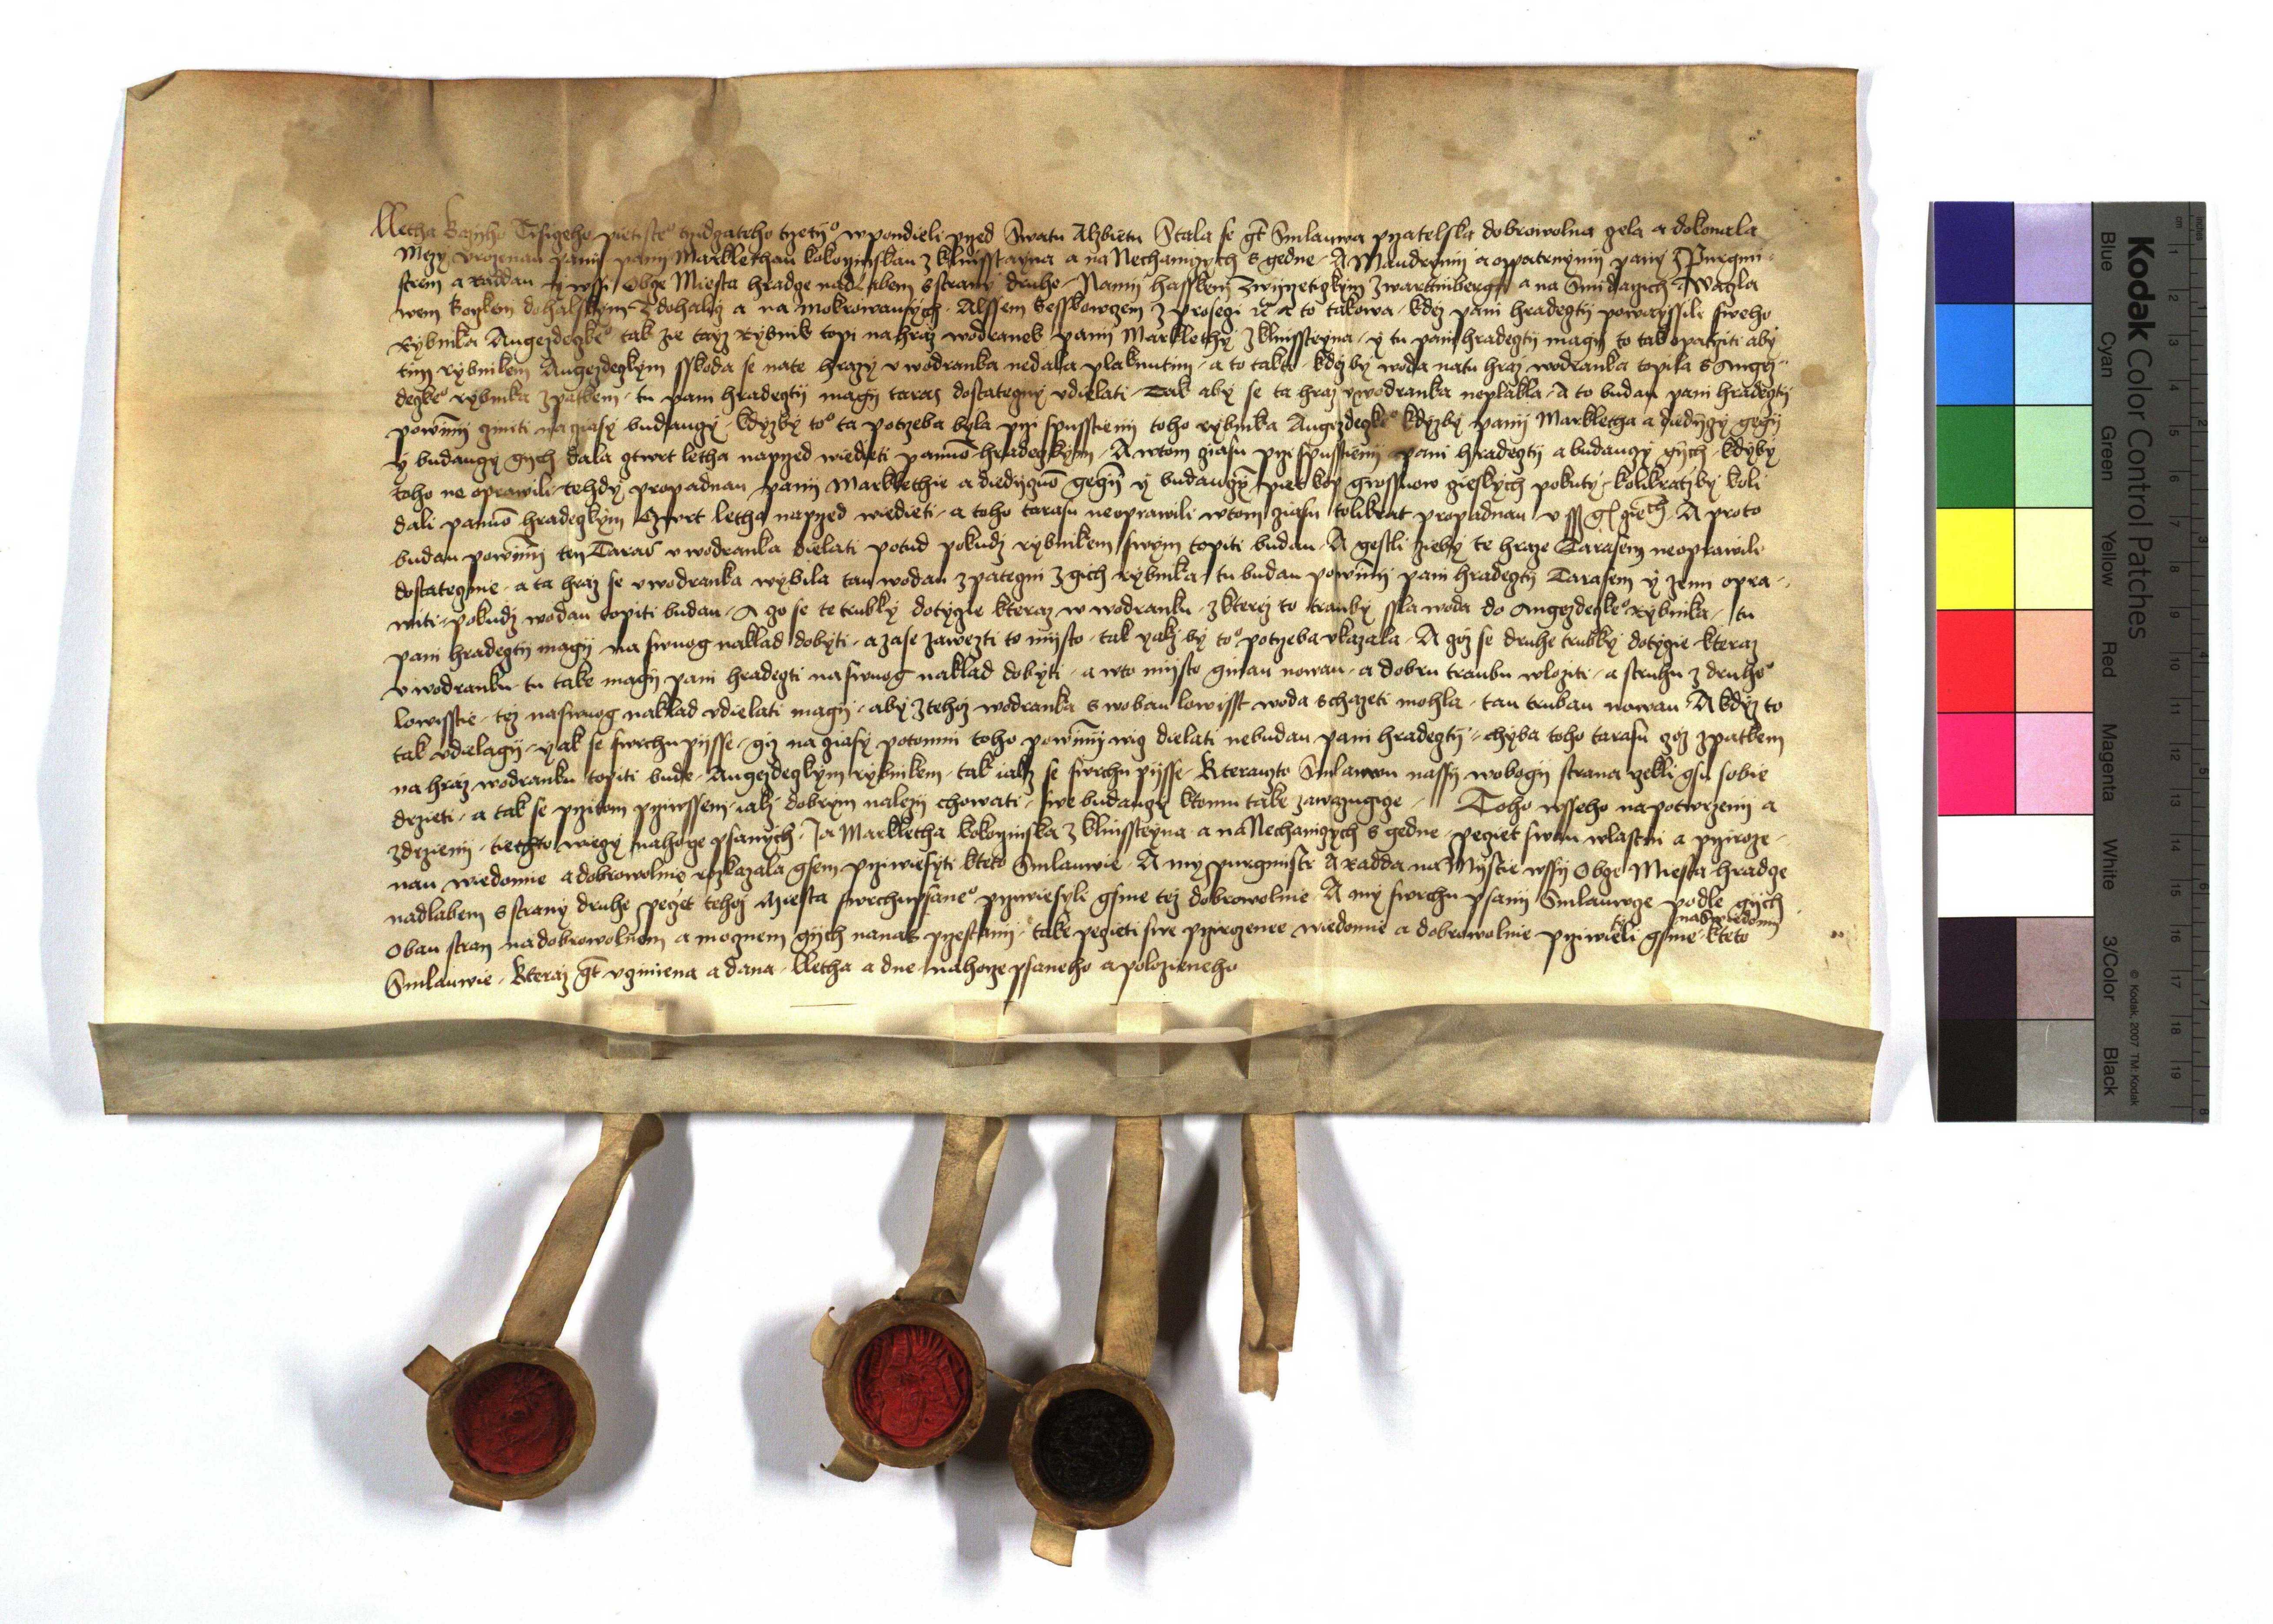 Letha Bozieho Tisyczeho pietisteo trzidczateho trzetijo w pondieli przed Swatu Alzbietu Stala se gt Smlauwa przatelska dobrowolna czela a dokonala
Mezy vrozenau panij panij Markklethau kokorzinskau z klinssteyna a na Nechaniczych s gedne A Maudrymi a oppatrnymij pany Purgmi-
strem a Raddau y wssi Obcze Miesta hradcze nad labem s strany druhe
wem Bozkem dohalskym z dohalicz a na Mokrowausych z Proseczi a to takowa kdyz pani hradecztij powayssili sweho
Rybnika Augezdeczkeo tak ze tayz Rybnik topi na hraz wodranek panij Markklethy z klinssteyna y tu pani hradecztij magij to tak opatrziti aby
tim rybnikem Augezdeczkym sskoda se nate hrazy v wodranka nedala plaknutim a to takto kdyz by woda natu hraz wodranka topila s Augez-
deczkeo rybnika zpatkem tu pani hradecztij magij taras dostateczny vdielati Tak aby se ta hraz v wodranka neplakla A to budau pani hradecztij
powinnij cziniti na czasy buduczy kdyzby too ta potrzeba byla przi spusstienij toho rybnika Augezdeczkeo kdyzby panij Markkletha a diediczy gegij
y buduczy gich dala cztwrt letha naprzed wiedieti panuom hradeczkym A w tom cziasu przi spusstienij pani hradecztij a buduczy gich kdyby
toho ne oprawili tehdy propadnau panij Markklethie a diediczuom gegijm y buduczym piet kop grossuow czieskych pokuty kolikratzby koli
dali panuom hradeczkym Cztwrt letha naprzed wiedieti a toho tarasu neoprawili w tom cziasu tolikrat propadnau A proto
budau powinnij ten Taras v wodranka dielati potud pokudz rybnikem swym topiti budau A gestli zieby te hraze Tarasem neoprawili
dostatecznie a ta hraz se v wodranka wybila tau wodau zpateczni z gich rybnika tu budau powinnij pani hradecztij Tarasem y zemi opra-
witi pokudz wodau topiti budau A czo se te trubky dotycze kteraz w wodranku z kterez to trauby ssla woda do Augezdeczkeo rybnika tu
pani hradecztij magij na swuog naklad dobyti a zase zawezti to mijsto tak yakz by too potrzeba vkazala A czoz se druhe trubky dotycze kteraz
v wodranku tu take magij pani hradeczti na swuog naklad dobyti a w to mijsto ginau nowau a dobru traubu wloziti a struhu z druheo
lowisstie tez na swuog naklad vdielati magij aby z tehoz wodranka s wobau lowisst woda schazeti mohla tau trubau nowau A kdyz to
tak vdielagij yak se swrchu pijsse giz na cziasy potomni toho powinnij wicz dielati nebudau pani hradecztij chyba toho tarasu czoz zpatkem
na hraz wodranku topiti bude Augezdeczkym rybnikem tak iakz se swrchu pijsse Kterauzto Smlauwu nassij wobogij strana rzekli gsu sobie
drzieti a tak se przitom przi wssem iakz dobrym nalezij chowati swe buduczy k tomu take zawazugicze Toho wsseho na potwrzenij a
zdrzienij tiechto wieczy nahorze psanych Ja Markkletha kokorzinska z klinssteyna a na Nechaniczych s gedne peczet swau wlastni a przirozen-
nau wiedomie a dobrowolnie rozkazala gsem przywiesyti kteto Smlauwie A my purgmistr A Radda na Mijstie wssij Obcze Miesta hradcze
nad labem s strany druhe peczet tehoz Miesta swrchu psaneo przywiesyli gsme tez dobrowolnie A my swrchu psanij Smlauwcze podle gich
Obau stran na dobrowolnem a mocznem gich nanas przestanij take peczieti swe przirozenee wiedomie a dobrowolnie przywiesyli gsme na Swiedomij kteto
Smlauwie Kteraz gt vcziniena a dana Letha a dne nahorze psaneho a polozieneho
Kodak Color Control Patches
Blue Cyan Green Yellow Red Magenta White 3/Color Black
© Kodak, 2007 TM: Kodak